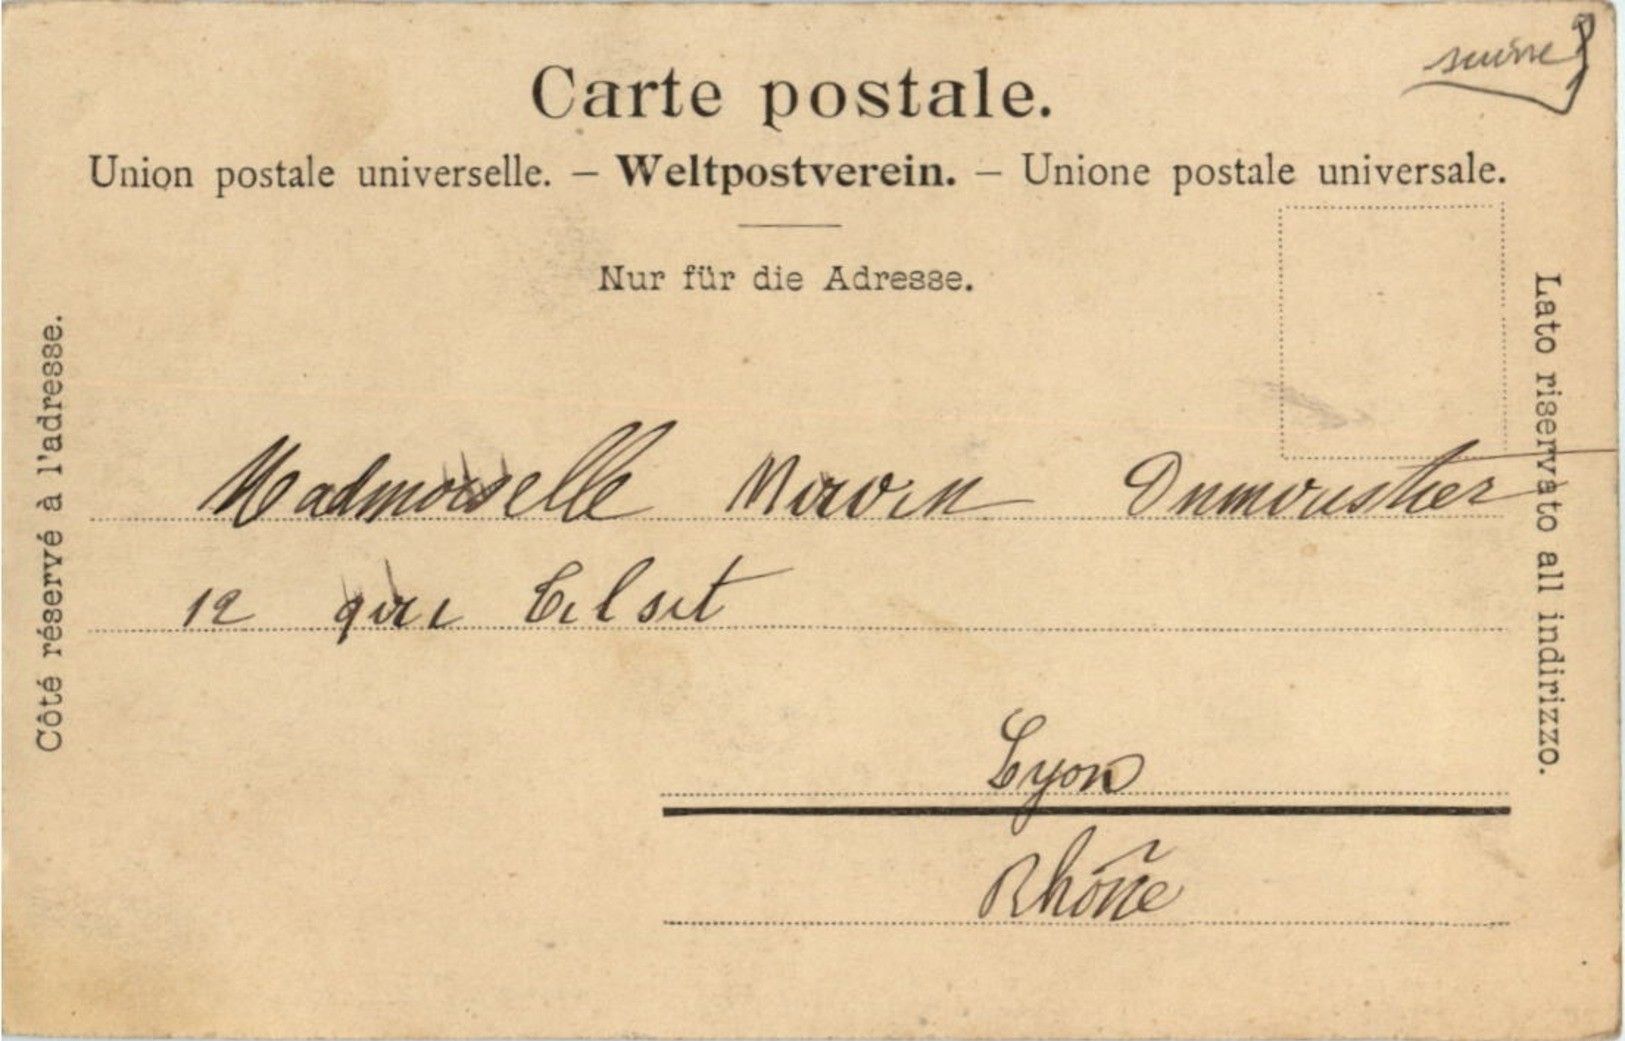 suisse
Carte postale.
Union postale universelle. – Weltpostverein. – Unione postale universale.
Nur für die Adresse.
Côté réservé à l'adresse.
Lato riservato all indirizzo.
Madmoiselle Dumoustier
12 quai Tilsit
Lyon
Rhône